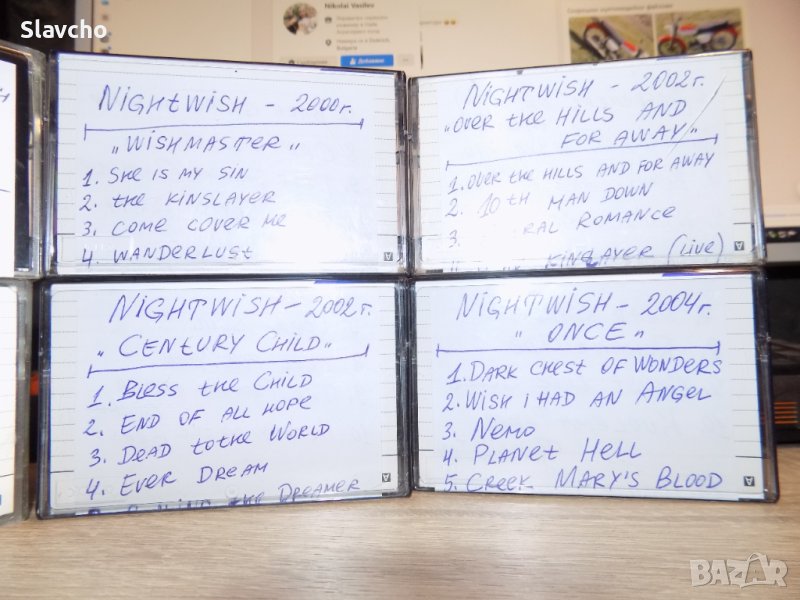 Slavcho
Nikolai Vasilev
NIGHTWISH - 2000г.
„WISHMASTER„
1. SHE IS MY SIN
2. THE KINSLAYER
3. COME COVER ME
4. WANDERLUST
A
NIGHTWISH - 2002г.
„OVER THE HILLS AND
FOR AWAY„
1. OVER THE HILLS AND FOR AWAY
2. 10TH MAN DOWN
3. RAL ROMANCE
KINSLAYER (Live)
A
NIGHTWISH - 2002г.
„CENTURY CHILD„
1. BLESS THE CHILD
2. END OF ALL HOPE
3. DEAD TO THE WORLD
4. EVER DREAM
THE DREAMER
A
NIGHTWISH - 2004г.
„ONCE„
1. DARK CHEST OF WONDERS
2. WISH I HAD AN ANGEL
3. NEMO
4. PLANET HELL
5. CREEK MARY'S BLOOD
A
BAZAR